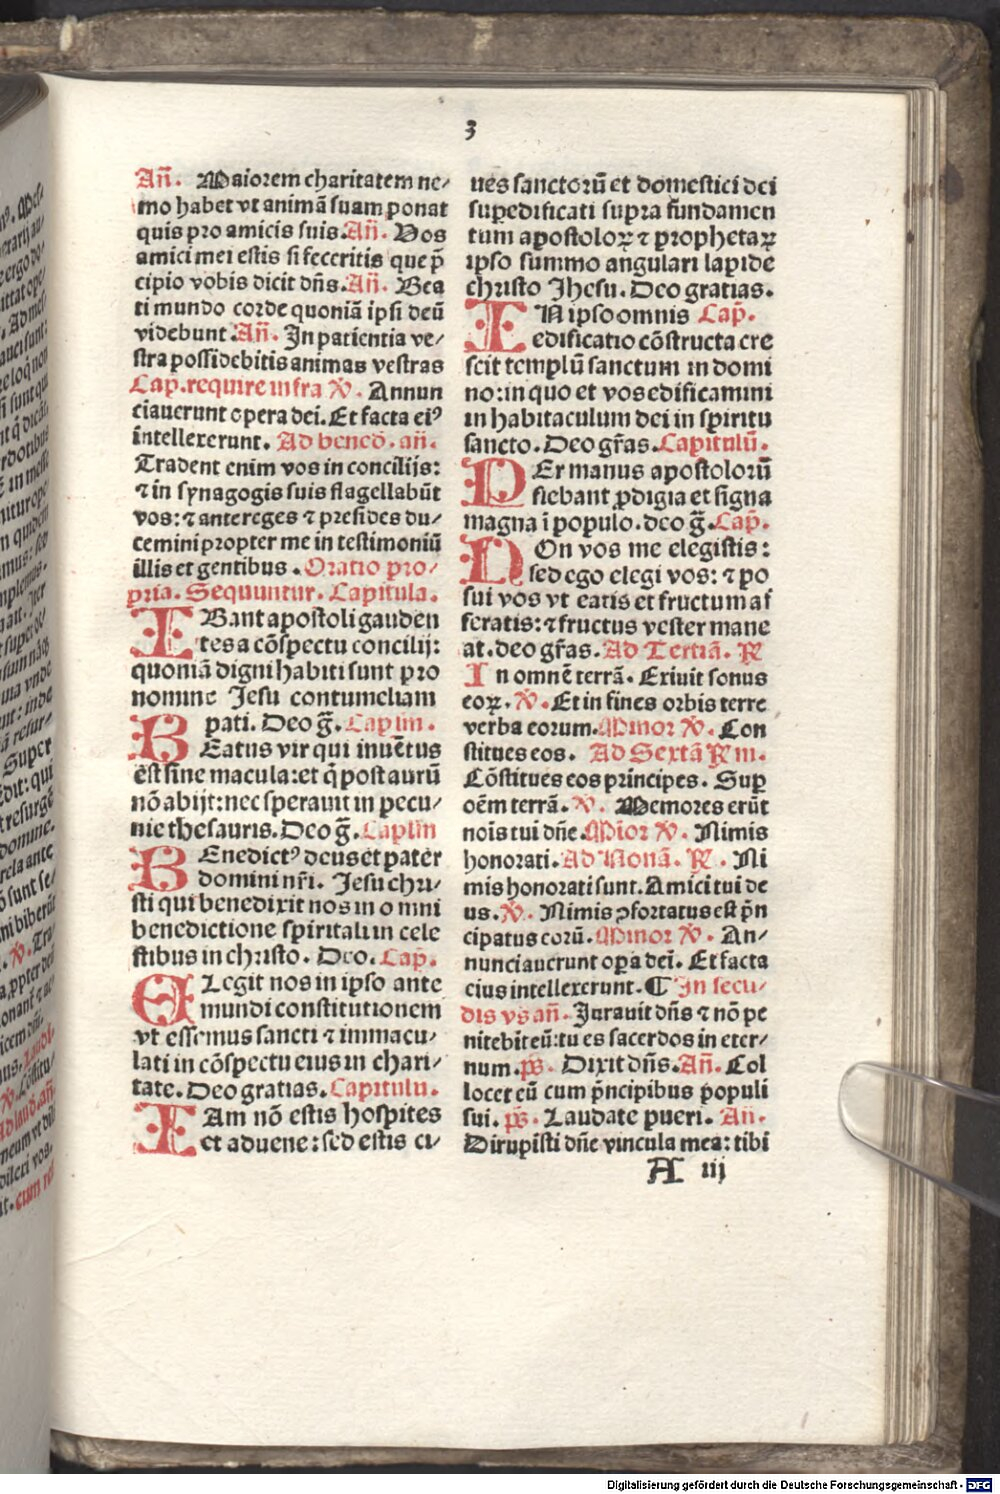 3
An̄. Maiorem charitatem ne⸗
mo habet vt animā suam ponat
quis pro amicis suis. An̄. Vos
amici mei estis si feceritis que p̄
cipio vobis dicit dn̄s. An̄. Bea
ti mundo corde quoniā ipsi deū
videbunt. An̄. In patientia ve⸗
stra possidebitis animas vestras
Cap. require infra ℣. Annun
ciauerunt opera dei. Et facta eiꝰ
intellexerunt. Ad bened̄. an̄.
Tradent enim vos in concilijs:
⁊ in synagogis suis flagellabūt
vos: ⁊ ante reges ⁊ presides du⸗
cemini propter me in testimoniū
illis et gentibus. Oratio pro⸗
pria. Sequuntur. Capitula.
IBant apostoli gauden
tes a cōspectu concilij:
quoniā digni habiti sunt pro
nomine Jesu contumeliam
pati. Deo ḡ. Caplm.
BEatus vir qui inuētus
est sine macula: et q̄ post aurū
nō abijt: nec sperauit in pecu⸗
nie thesauris. Deo ḡ. Caplm
BEnedictꝰ deus et pater
domini nr̄i. Jesu chri⸗
sti qui benedixit nos in omni
benedictione spiritali in cele
stibus in christo. Deo. Cap̄.
ELegit nos in ipso ante
mundi constitutionem
vt essemus sancti ⁊ immacu⸗
lati in cōspectu eius in chari⸗
tate. Deo gratias. Capitulu.
IAm nō estis hospites
et aduene: sed estis ci⸗
ues sanctorū et domestici dei
suꝑedificati supra fundamen
tum apostoloꝝ ⁊ prophetaꝝ
ipso summo angulari lapide
christo Jhesu. Deo gratias.
IN ipso omnis Cap̄.
edificatio cōstructa cre
scit templū sanctum in domi
no: in quo et vos edificamini
in habitaculum dei in spiritu
sancto. Deo gr̄as. Capitulū.
PEr manus apostolorū
fiebant ꝓdigia et signa
magna ī populo. deo ḡ. Cap̄.
NOn vos me elegistis:
sed ego elegi vos: ⁊ po
sui vos vt eatis et fructum af
feratis: ⁊ fructus vester mane
at. deo gr̄as. Ad Tertiā. ℟
In omnē terrā. Exiuit sonus
eoꝝ. ℣. Et in fines orbis terre
verba eorum. Minor ℣. Con
stitues eos. Ad Sextā ℟ m.
Cōstitues eos principes. Suꝑ
oēm terrā. ℣. Memores erūt
nois tui dn̄e. Mīor ℣. Nimis
honorati. Ad Nonā. ℟. Ni
mis honorati sunt. Amici tui de
us. ℣. Nimis ꝯfortatus est p̄n
cipatus eorū. Minor ℣. An⸗
nunciauerunt oꝑa dei. Et facta
eius intellexerunt. ¶ In secu⸗
dis vs̄ an̄. Jurauit dn̄s ⁊ nō pe
nitebit eū: tu es sacerdos in eter⸗
num. ps̄. Dixit dn̄s. An̄. Col
locet eū cum p̄ncipibus populi
sui. ps̄. Laudate pueri. An̄.
Dirupisti dn̄e vincula mea: tibi
A iij
Digitalisierung gefördert durch die Deutsche Forschungsgemeinschaft - DFG